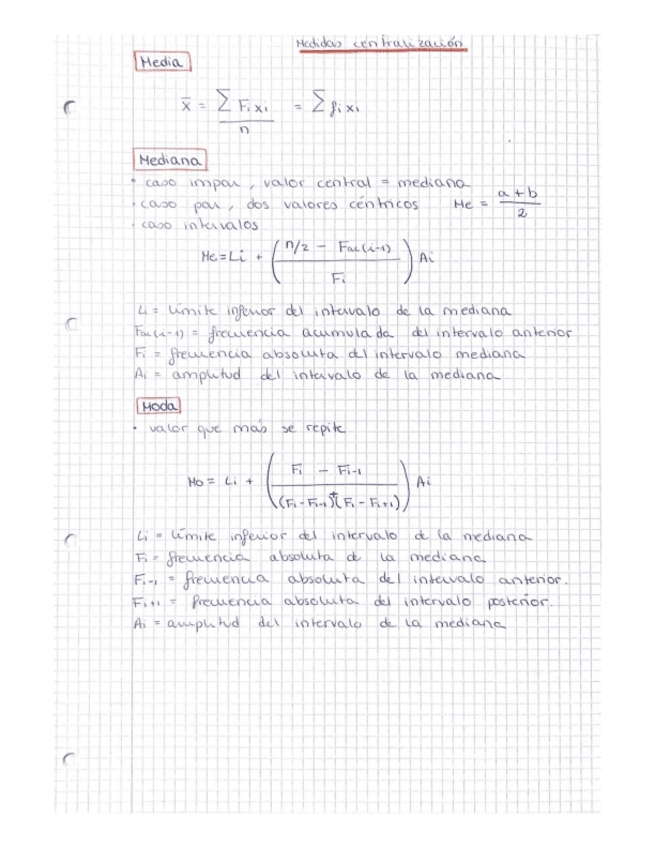 Medidas centralización
Media
x̄ = ∑ Fi xi / n = ∑ fi xi
Mediana
• caso impar, valor central = mediana
• caso par, dos valores céntricos Me = a + b / 2
• caso intervalos
Me = Li + ( n/2 - Fac(i-1) / Fi ) Ai
Li = límite inferior del intervalo de la mediana
Fac(i-1) = frecuencia acumulada del intervalo anterior
Fi = frecuencia absoluta del intervalo mediana
Ai = amplitud del intervalo de la mediana
Moda
• valor que más se repite
Mo = Li + ( Fi - Fi-1 / (Fi - Fi-1) + (Fi - Fi+1) ) Ai
Li = límite inferior del intervalo de la mediana
Fi = frecuencia absoluta de la mediana
Fi-1 = frecuencia absoluta del intervalo anterior.
Fi+1 = frecuencia absoluta del intervalo posterior.
Ai = amplitud del intervalo de la mediana